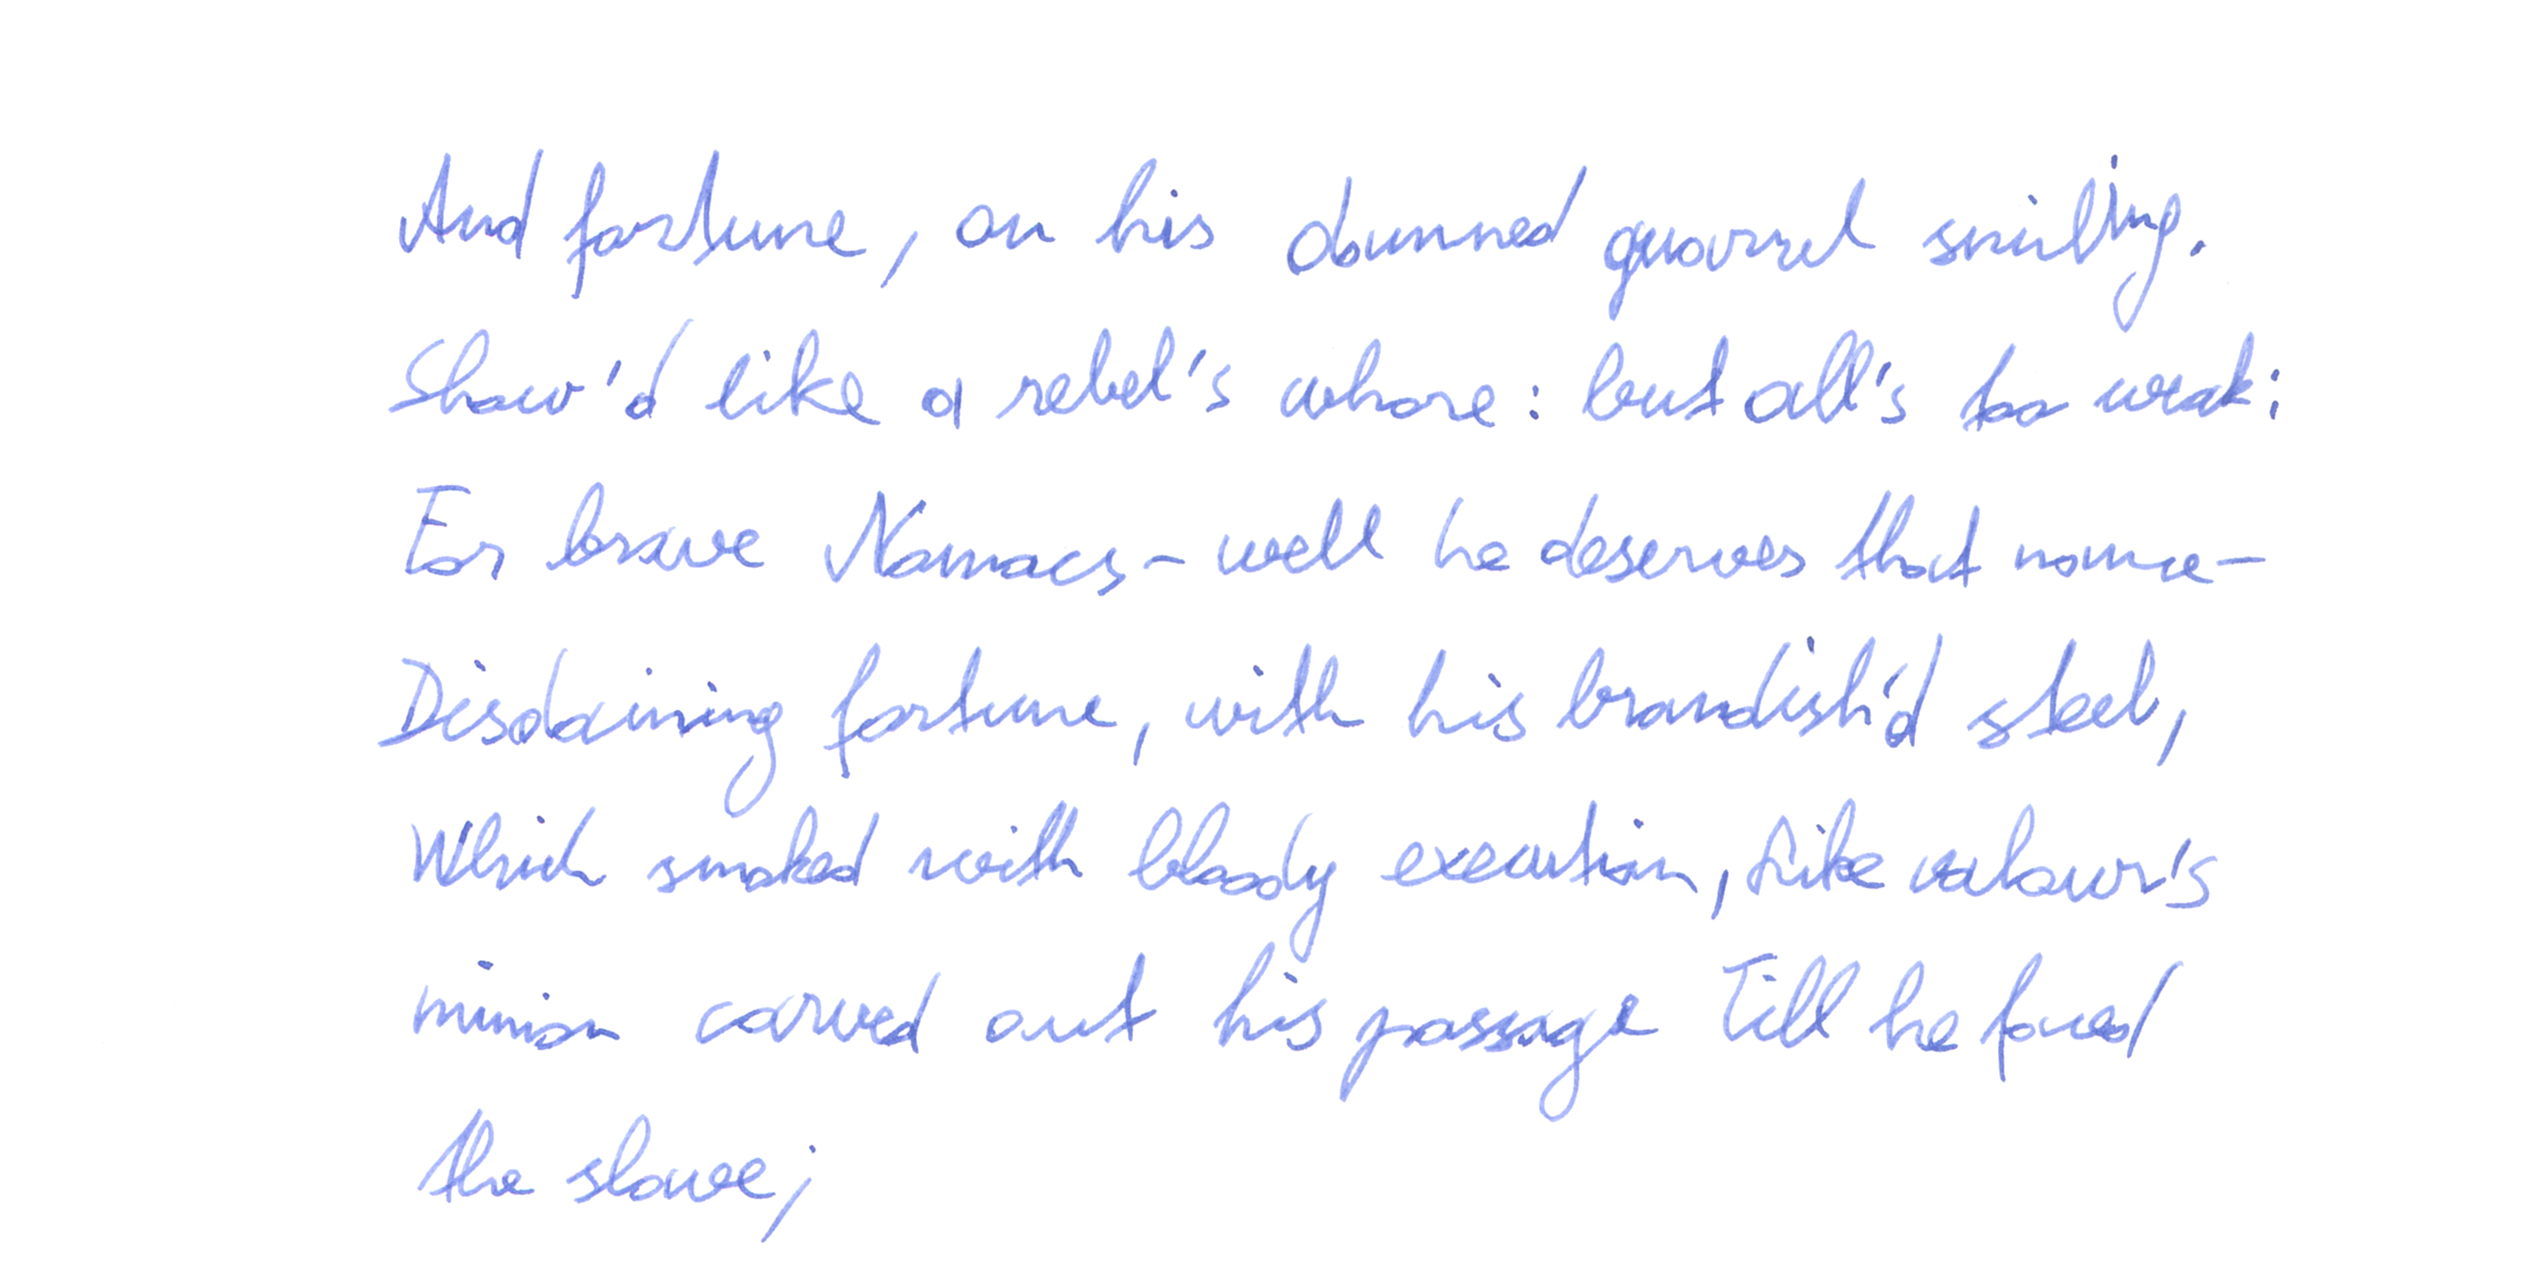 And fortune, on his damned quarrel smiling.
Show'd like a rebel's whore: but all's too weak:
For brave Namacs - well he deserves that name -
Disdaining fortune, with his brandish'd steel,
Which smoked with bloody execution, Like valour's
minion carved out his passage Till he faced
the slave;